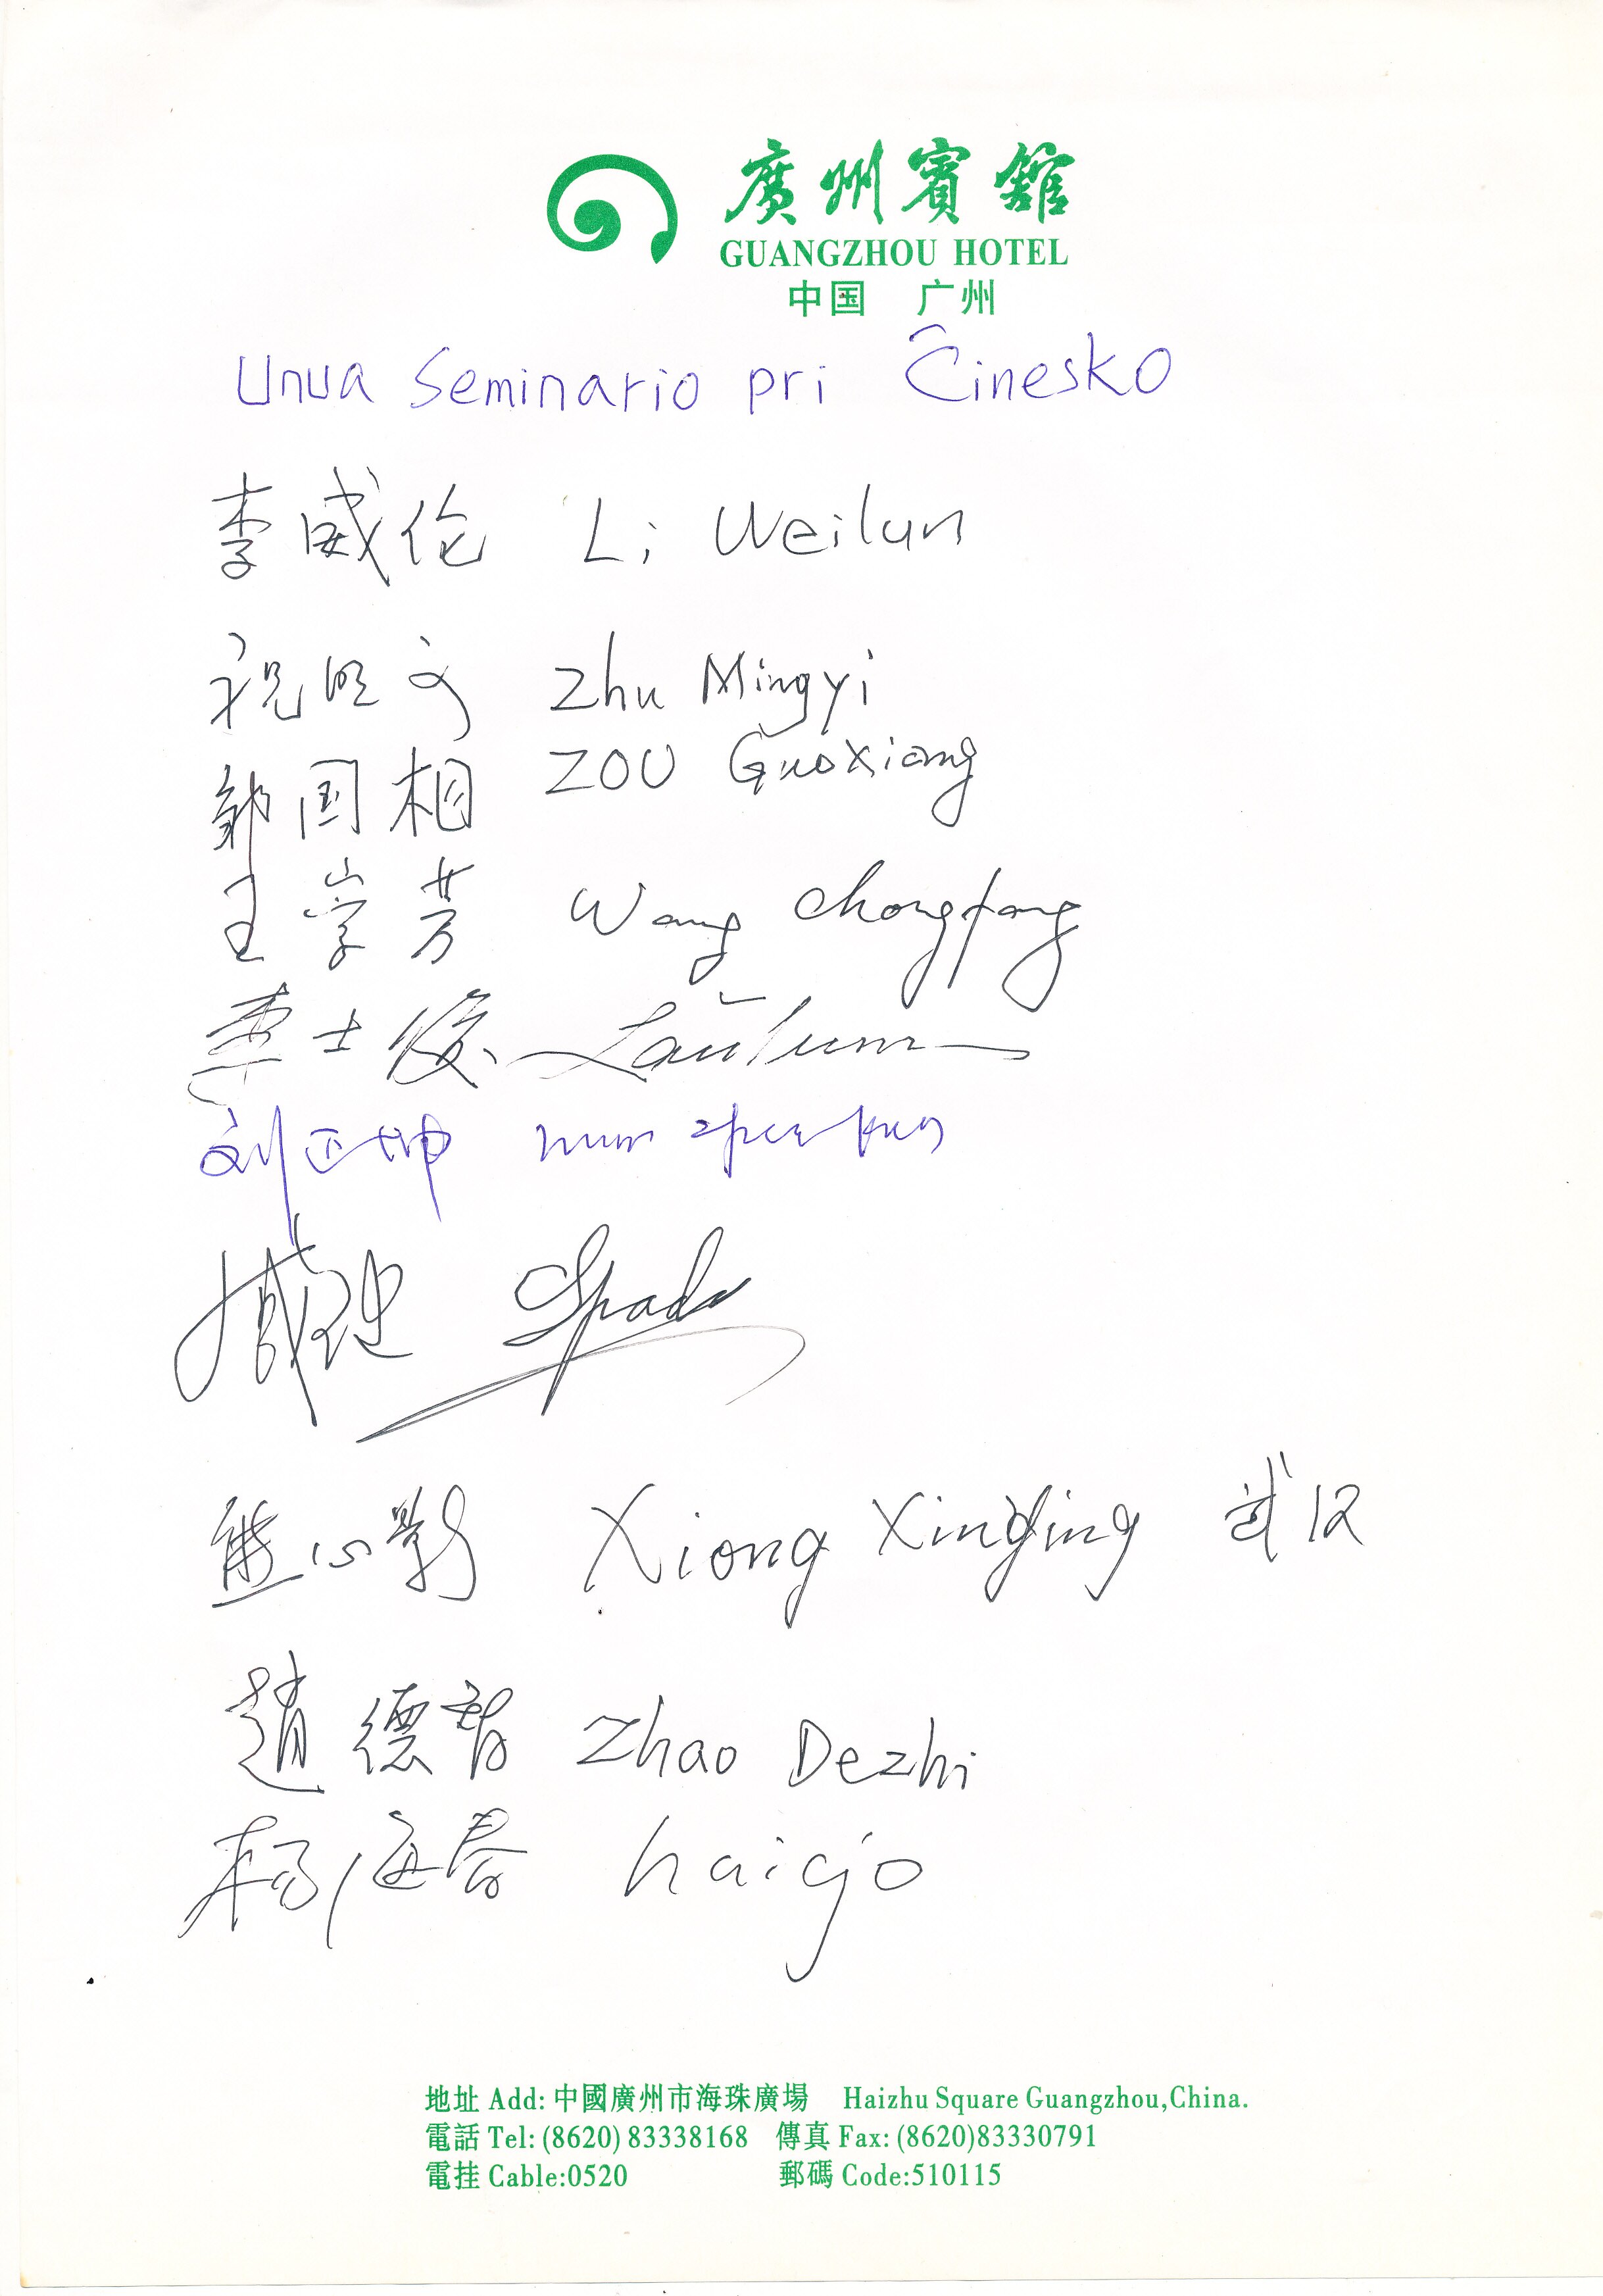 廣州賓館
GUANGZHOU HOTEL
中国 广州
Unua Seminario pri Ĉinesko
李威伦 Li Weilun
祝明义 Zhu Mingyi
邹国相 ZOU Guoxiang
王崇芳 Wang Chongfang
李士俊 Laŭlum
刘正坤
臧 Spada
熊心影 Xiong Xinying 武汉
趙德智 Zhao Dezhi
杨海春 haigo
地址 Add: 中國廣州市海珠廣場 Haizhu Square Guangzhou,China.
電話 Tel: (8620) 83338168 傳真 Fax: (8620)83330791
電挂 Cable:0520 郵碼 Code:510115